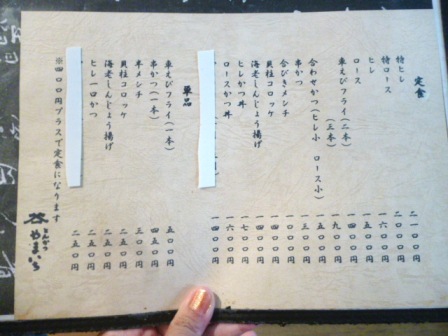 定食
特ヒレ 二一〇〇円
特ロース 二〇〇〇円
ヒレ 一六〇〇円
ロース 一五〇〇円
車えびフライ(二本) 一四〇〇円
(三本) 一九〇〇円
合わせかつ(ヒレ小 ロース小) 一五〇〇円
串かつ 一三〇〇円
合びきメンチ 一〇〇〇円
貝柱コロッケ 一四〇〇円
海老しんじょう揚げ 一四〇〇円
ヒレかつ丼 一七〇〇円
ロースかつ丼 一六〇〇円
一四〇〇円
単品
車えびフライ(一本) 五〇〇円
串かつ(一本) 四五〇円
半メンチ 三〇〇円
貝柱コロッケ 二五〇円
海老しんじょう揚げ 二五〇円
ヒレ一口かつ 二五〇円
二五〇円
※四〇〇円プラスで定食になります
とんかつ
やまいち